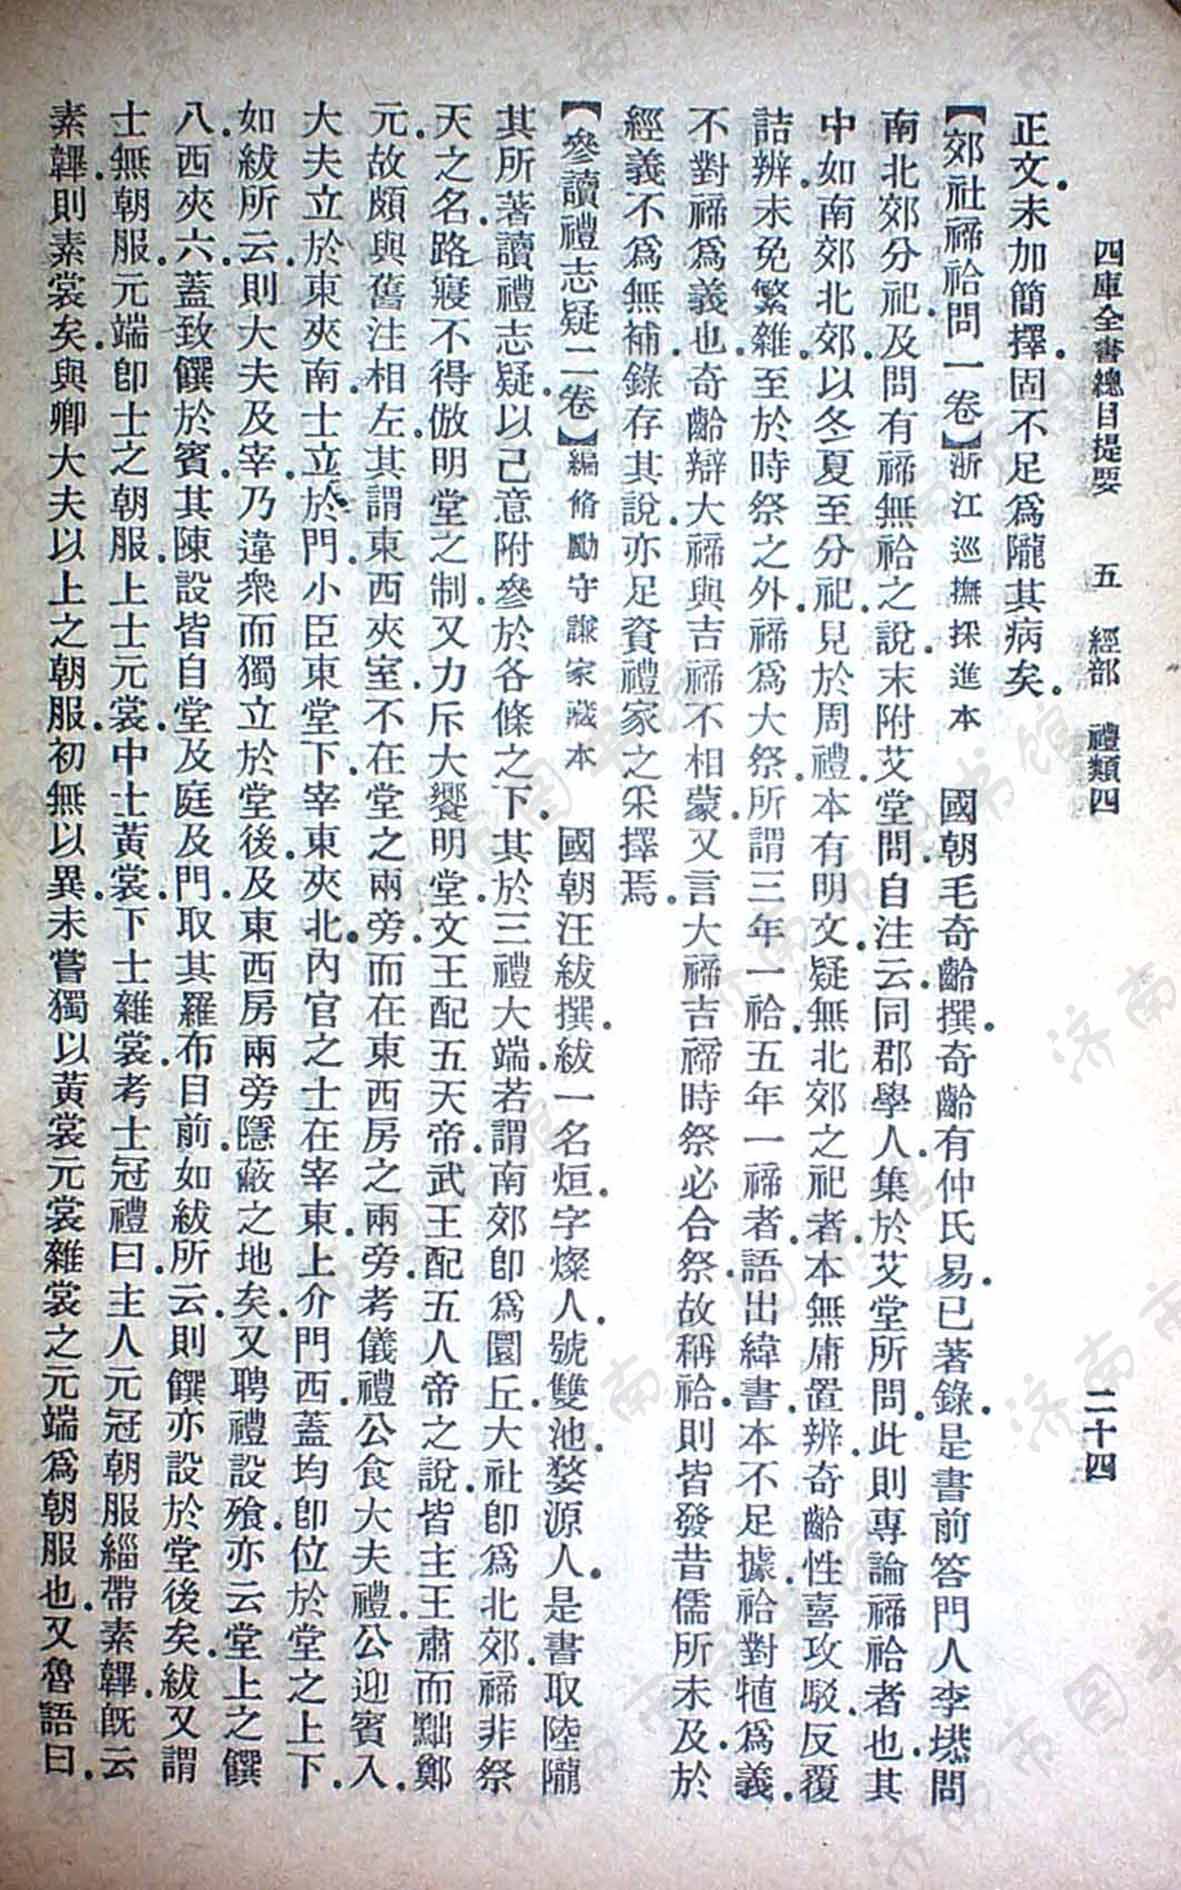 四庫全書總目提要　五　經部　禮類四　二十四
正文。未加簡擇。固不足爲隴其病矣。
【郊社禘祫問一卷】浙江巡撫採進本　國朝毛奇齡撰。奇齡有仲氏易。已著錄。是書前答門人李塨問
南北郊分祀。及問有禘無祫之說。末附艾堂問。自注云。同郡學人。集於艾堂所問。此則專論禘祫者也。其
中如南郊北郊。以冬夏至分祀。見於周禮。本有明文。疑無北郊之祀者。本無庸置辨。奇齡性喜攻駁。反覆
詰辨。未免繁雜。至於時祭之外。禘爲大祭。所謂三年一祫。五年一禘者。語出緯書。本不足據。祫對犆爲義。
不對禘爲義也。奇齡辯大禘與吉禘不相蒙。又言大禘吉禘時祭必合祭。故稱祫。則皆發昔儒所未及。於
經義不爲無補。錄存其說。亦足資禮家之采擇焉。
【參讀禮志疑二卷】編脩勵守謙家藏本　國朝汪紱撰。紱一名烜。字燦人。號雙池。婺源人。是書取陸隴
其所著讀禮志疑。以己意附參於各條之下。其於三禮大端。若謂南郊卽爲圜丘。大社卽爲北郊。禘非祭
天之名。路寢不得倣明堂之制。又力斥大饗明堂。文王配五天帝。武王配五人帝之說。皆主王肅而黜鄭
元。故頗與舊注相左。其謂東西夾室。不在堂之兩旁。而在東西房之兩旁。考儀禮公食大夫禮。公迎賓入。
大夫立於東夾南。士立於門。小臣東堂下。宰東夾北。內官之士在宰東。上介門西。蓋均卽位於堂之上下。
如紱所云。則大夫及宰。乃違衆而獨立於堂後。及東西房兩旁。隱蔽之地矣。又聘禮設飧。亦云堂上之饌
八。西夾六。蓋致饌於賓。其陳設皆自堂及庭及門。取其羅布目前。如紱所云。則饌亦設於堂後矣。紱又謂
士無朝服。元端卽士之朝服。上士元裳。中士黃裳。下士雜裳。考士冠禮曰。主人元冠朝服緇帶素韠。旣云
素韠。則素裳矣。與卿大夫以上之朝服。初無以異。未嘗獨以黃裳元裳雜裳之元端爲朝服也。又魯語曰。